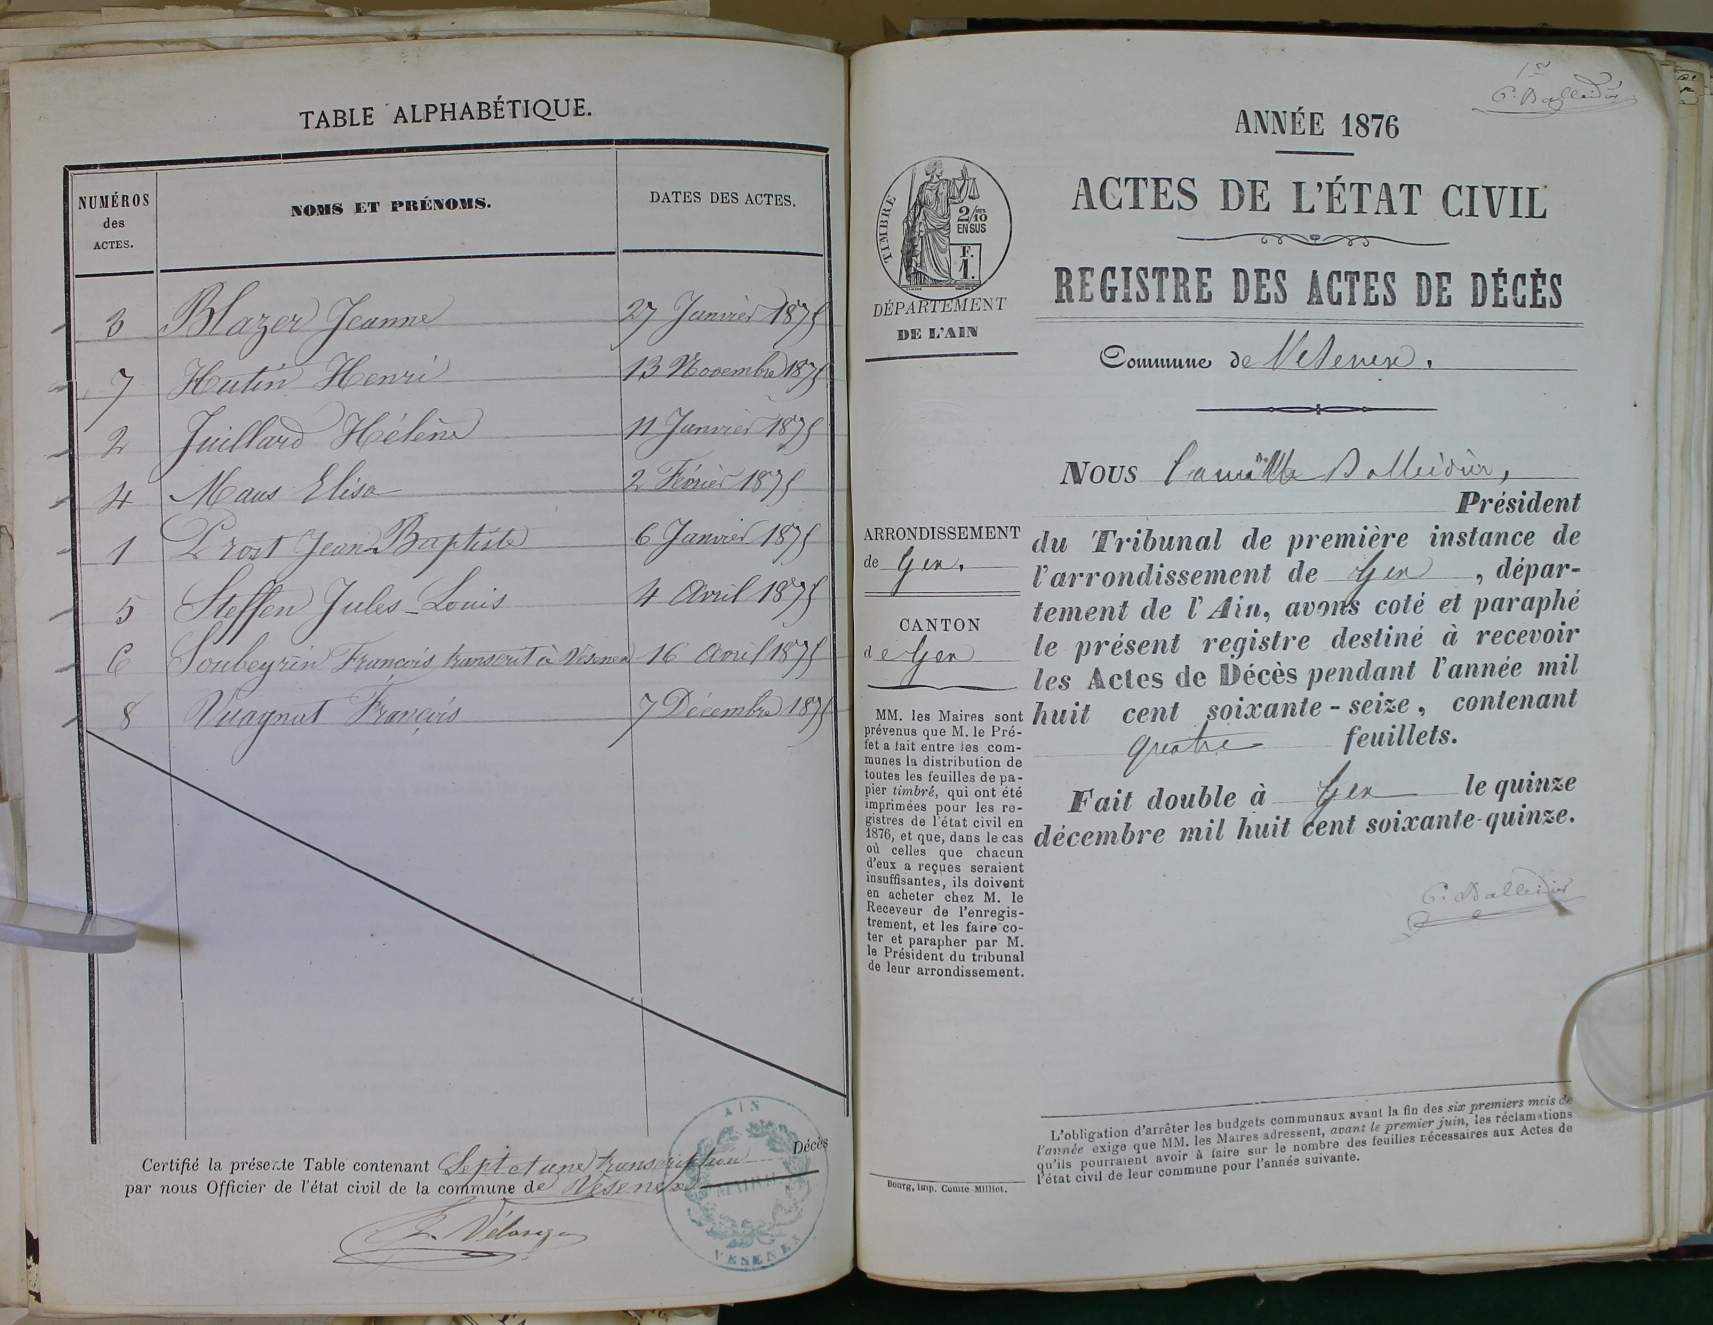 TABLE ALPHABÉTIQUE.
NUMÉROS des ACTES.
NOMS ET PRÉNOMS.
DATES DES ACTES.
3 Blazer Jeanne 27 Janvier 1875
7 Hutin Henri 13 Novembre 1875
2 Juillard Hélène 11 Janvier 1875
4 Maus Elisa 2 Février 1875
1 Prost Jean Baptiste 6 Janvier 1875
5 Steffen Jules-Louis 4 Avril 1875
6 Soubeyrin François transcrit à Vésenex 16 Avril 1875
8 Vuagnat François 7 Décembre 1875
Certifié la présente Table contenant Sept et une transcription Décès
par nous Officier de l'état civil de la commune de Vésenex
AIN
MAIRIE
VESENEX
1er
C. Balleidier
ANNÉE 1876
ACTES DE L'ÉTAT CIVIL
REGISTRE DES ACTES DE DÉCÈS
TIMBRE
2/10
EN SUS
F.
1.
DÉPARTEMENT
DE L'AIN
Commune de Vésenex.
Nous Camille Balleidier,
Président
du Tribunal de première instance de
l'arrondissement de Gex, dépar-
tement de l'Ain, avons coté et paraphé
le présent registre destiné à recevoir
les Actes de Décès pendant l'année mil
huit cent soixante-seize, contenant
quatre feuillets.
Fait double à Gex le quinze
décembre mil huit cent soixante-quinze.
C. Balleidier
ARRONDISSEMENT
de Gex.
CANTON
de Gex
MM. les Maires sont
prévenus que M. le Pré-
fet a fait entre les com-
munes la distribution de
toutes les feuilles de pa-
pier timbré, qui ont été
imprimées pour les re-
gistres de l'état civil en
1876, et que, dans le cas
où celles que chacun
d'eux a reçues seraient
insuffisantes, ils doivent
en acheter chez M. le
Receveur de l'enregis-
trement, et les faire co-
ter et parapher par M.
le Président du tribunal
de leur arrondissement.
Bourg, Imp. Comte-Milliet.
L'obligation d'arrêter les budgets communaux avant la fin des six premiers mois de
l'année exige que MM. les Maires adressent, avant le premier juin, les réclamations
qu'ils pourraient avoir à faire sur le nombre des feuilles nécessaires aux Actes de
l'état civil de leur commune pour l'année suivante.